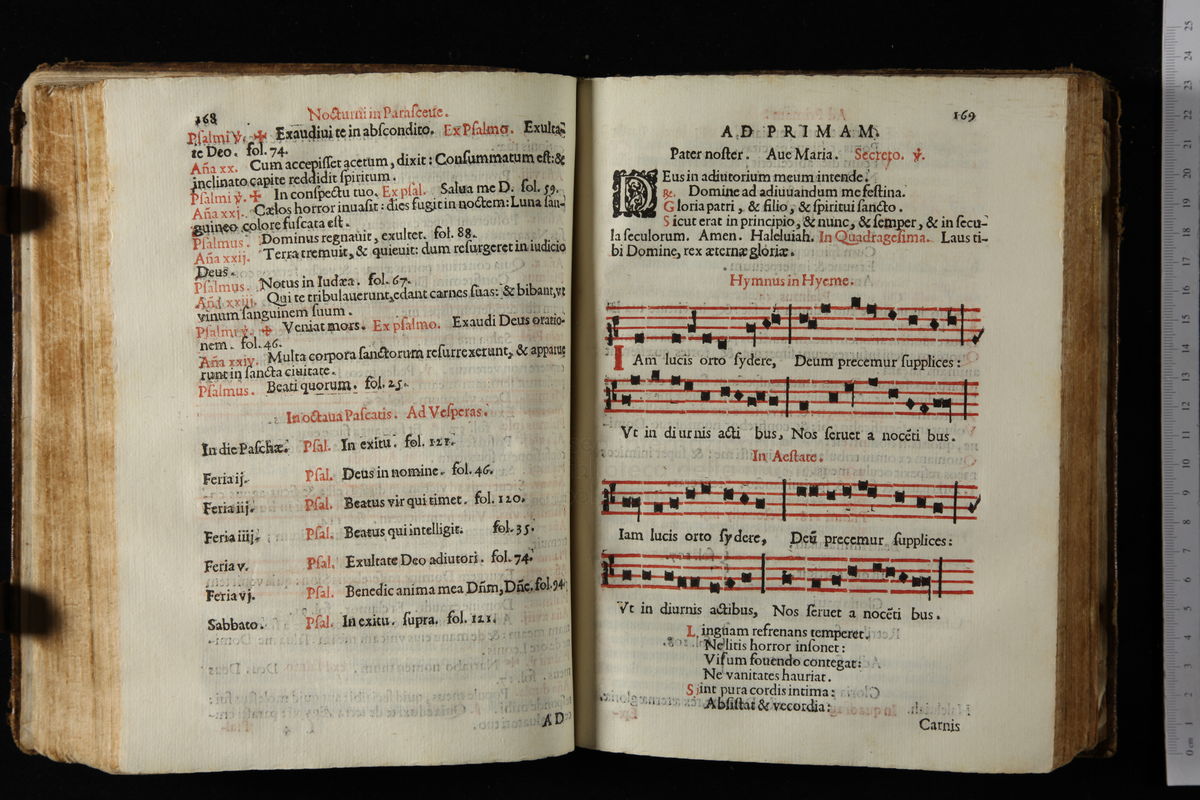 168
Nocturni in Parasceue.
Psalmi ℣. ✠ Exaudiui te in abscondito. Ex Psalmo. Exulta-
te Deo. fol. 74.
Aña xx. Cum accepisset acetum, dixit: Consummatum est: &
inclinato capite reddidit spiritum.
Psalmi ℣. ✠ In conspectu tuo. Ex psal. Salua me D. fol. 59.
Aña xxj. Cælos horror inuasit: dies fugit in noctem: Luna san-
guineo colore fuscata est.
Psalmus. Dominus regnauit, exultet. fol. 88.
Aña xxij. Terra tremuit, & quieuit: dum resurgeret in iudicio
Deus.
Psalmus. Notus in Iudæa. fol. 67.
Aña xxiij. Qui te tribulauerunt, edant carnes suas: & bibant, vt
vinum sanguinem suum.
Psalmi ℣. ✠ Veniat mors. Ex psalmo. Exaudi Deus oratio-
nem. fol. 46.
Aña xxiv. Multa corpora sanctorum resurrexerunt, & apparue
runt in sancta ciuitate.
Psalmus. Beati quorum. fol. 25.
In octaua Pascatis. Ad Vesperas.
In die Paschæ. Psal. In exitu. fol. 121.
Feria ij. Psal. Deus in nomine. fol. 46.
Feria iij. Psal. Beatus vir qui timet. fol. 120.
Feria iiij. Psal. Beatus qui intelligit. fol. 35.
Feria v. Psal. Exultate Deo adiutori. fol. 74.
Feria vj. Psal. Benedic anima mea Dñm, Dñe. fol. 94.
Sabbato. Psal. In exitu. supra. fol. 121.
AD
169
AD PRIMAM.
Pater noster. Aue Maria. Secreto. ℣.
DEus in adiutorium meum intende.
Re. Domine ad adiuuandum me festina.
Gloria patri, & filio, & spiritui sancto.
Sicut erat in principio, & nunc, & semper, & in secu-
la seculorum. Amen. Haleluiah. In Quadragesima. Laus ti-
bi Domine, rex æternæ gloriæ.
Hymnus in Hyeme.
IAm lucis orto sydere, Deum precemur supplices:
Vt in diurnis acti bus, Nos seruet a nocẽti bus.
In Aestate.
Iam lucis orto sydere, Deũ precemur supplices:
Vt in diurnis actibus, Nos seruet a nocẽti bus.
Linguam refrenans temperet.
Ne litis horror insonet:
Visum fouendo contegat:
Ne vanitates hauriat.
Sint pura cordis intima:
Absistat & vecordia:
Carnis